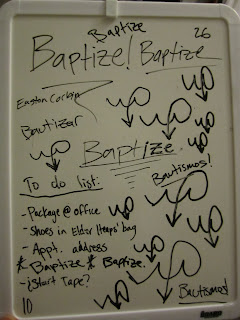 Baptize
26
Baptize! Baptize
Easton Corbin
Bautizar
Baptize.
To do list:
Bautismos!
- Package @ office
- Shoes in Elder Heaps' bag
- Appt. address
* Baptize * Baptize.
- iStart Tape?
10
Bautismos!